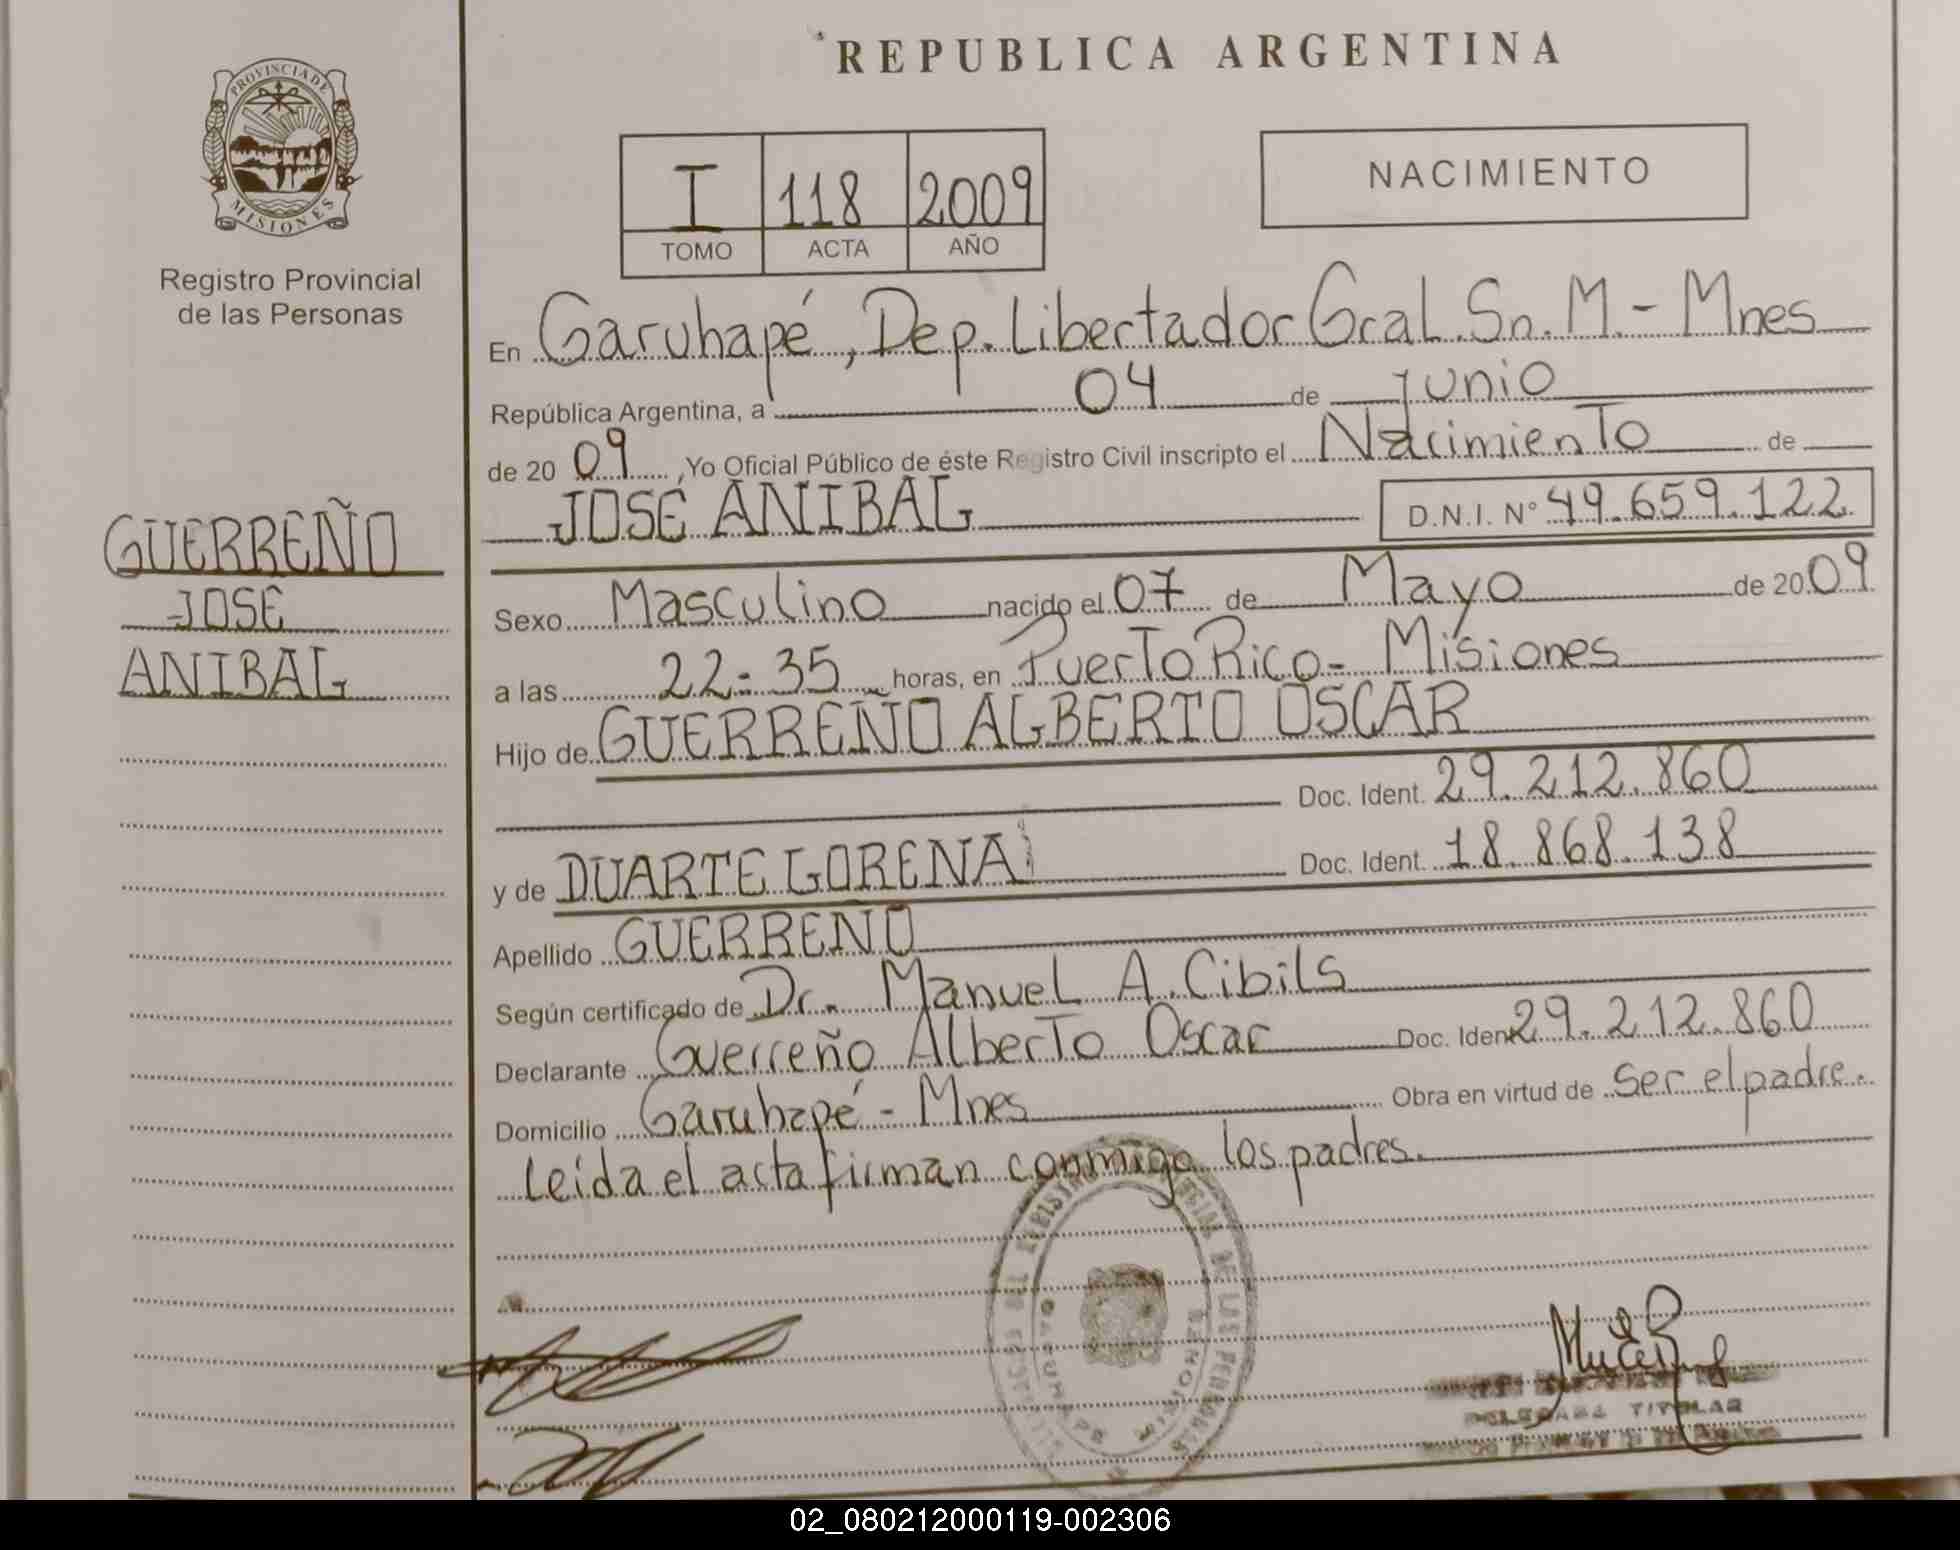 REPUBLICA ARGENTINA
PROVINCIA DE
MISIONES
Registro Provincial
de las Personas
I 118 2009
TOMO ACTA AÑO
NACIMIENTO
GUERREÑO
JOSE
ANIBAL
En Garuhapé, Dep. Libertador Gral. Sn. M. - Mnes
República Argentina, a 04 de junio
de 2009, Yo Oficial Público de éste Registro Civil inscripto el Nacimiento de
JOSE ANIBAL D.N.I. N° 49.659.122
Sexo Masculino nacido el 07 de Mayo de 2009
a las 22-35 horas, en Puerto Rico - Misiones
Hijo de GUERREÑO ALBERTO OSCAR
Doc. Ident. 29.212.860
y de DUARTE LORENA Doc. Ident. 18.868.138
Apellido GUERREÑO
Según certificado de Dr. Manuel A. Cibils
Declarante Guerreño Alberto Oscar Doc. Ident 29.212.860
Domicilio Garuhapé - Mnes Obra en virtud de ser el padre.
leída el acta firman conmigo los padres.
GARUHAPE
MISIONES
DELEGADA TITULAR
02_080212000119-002306